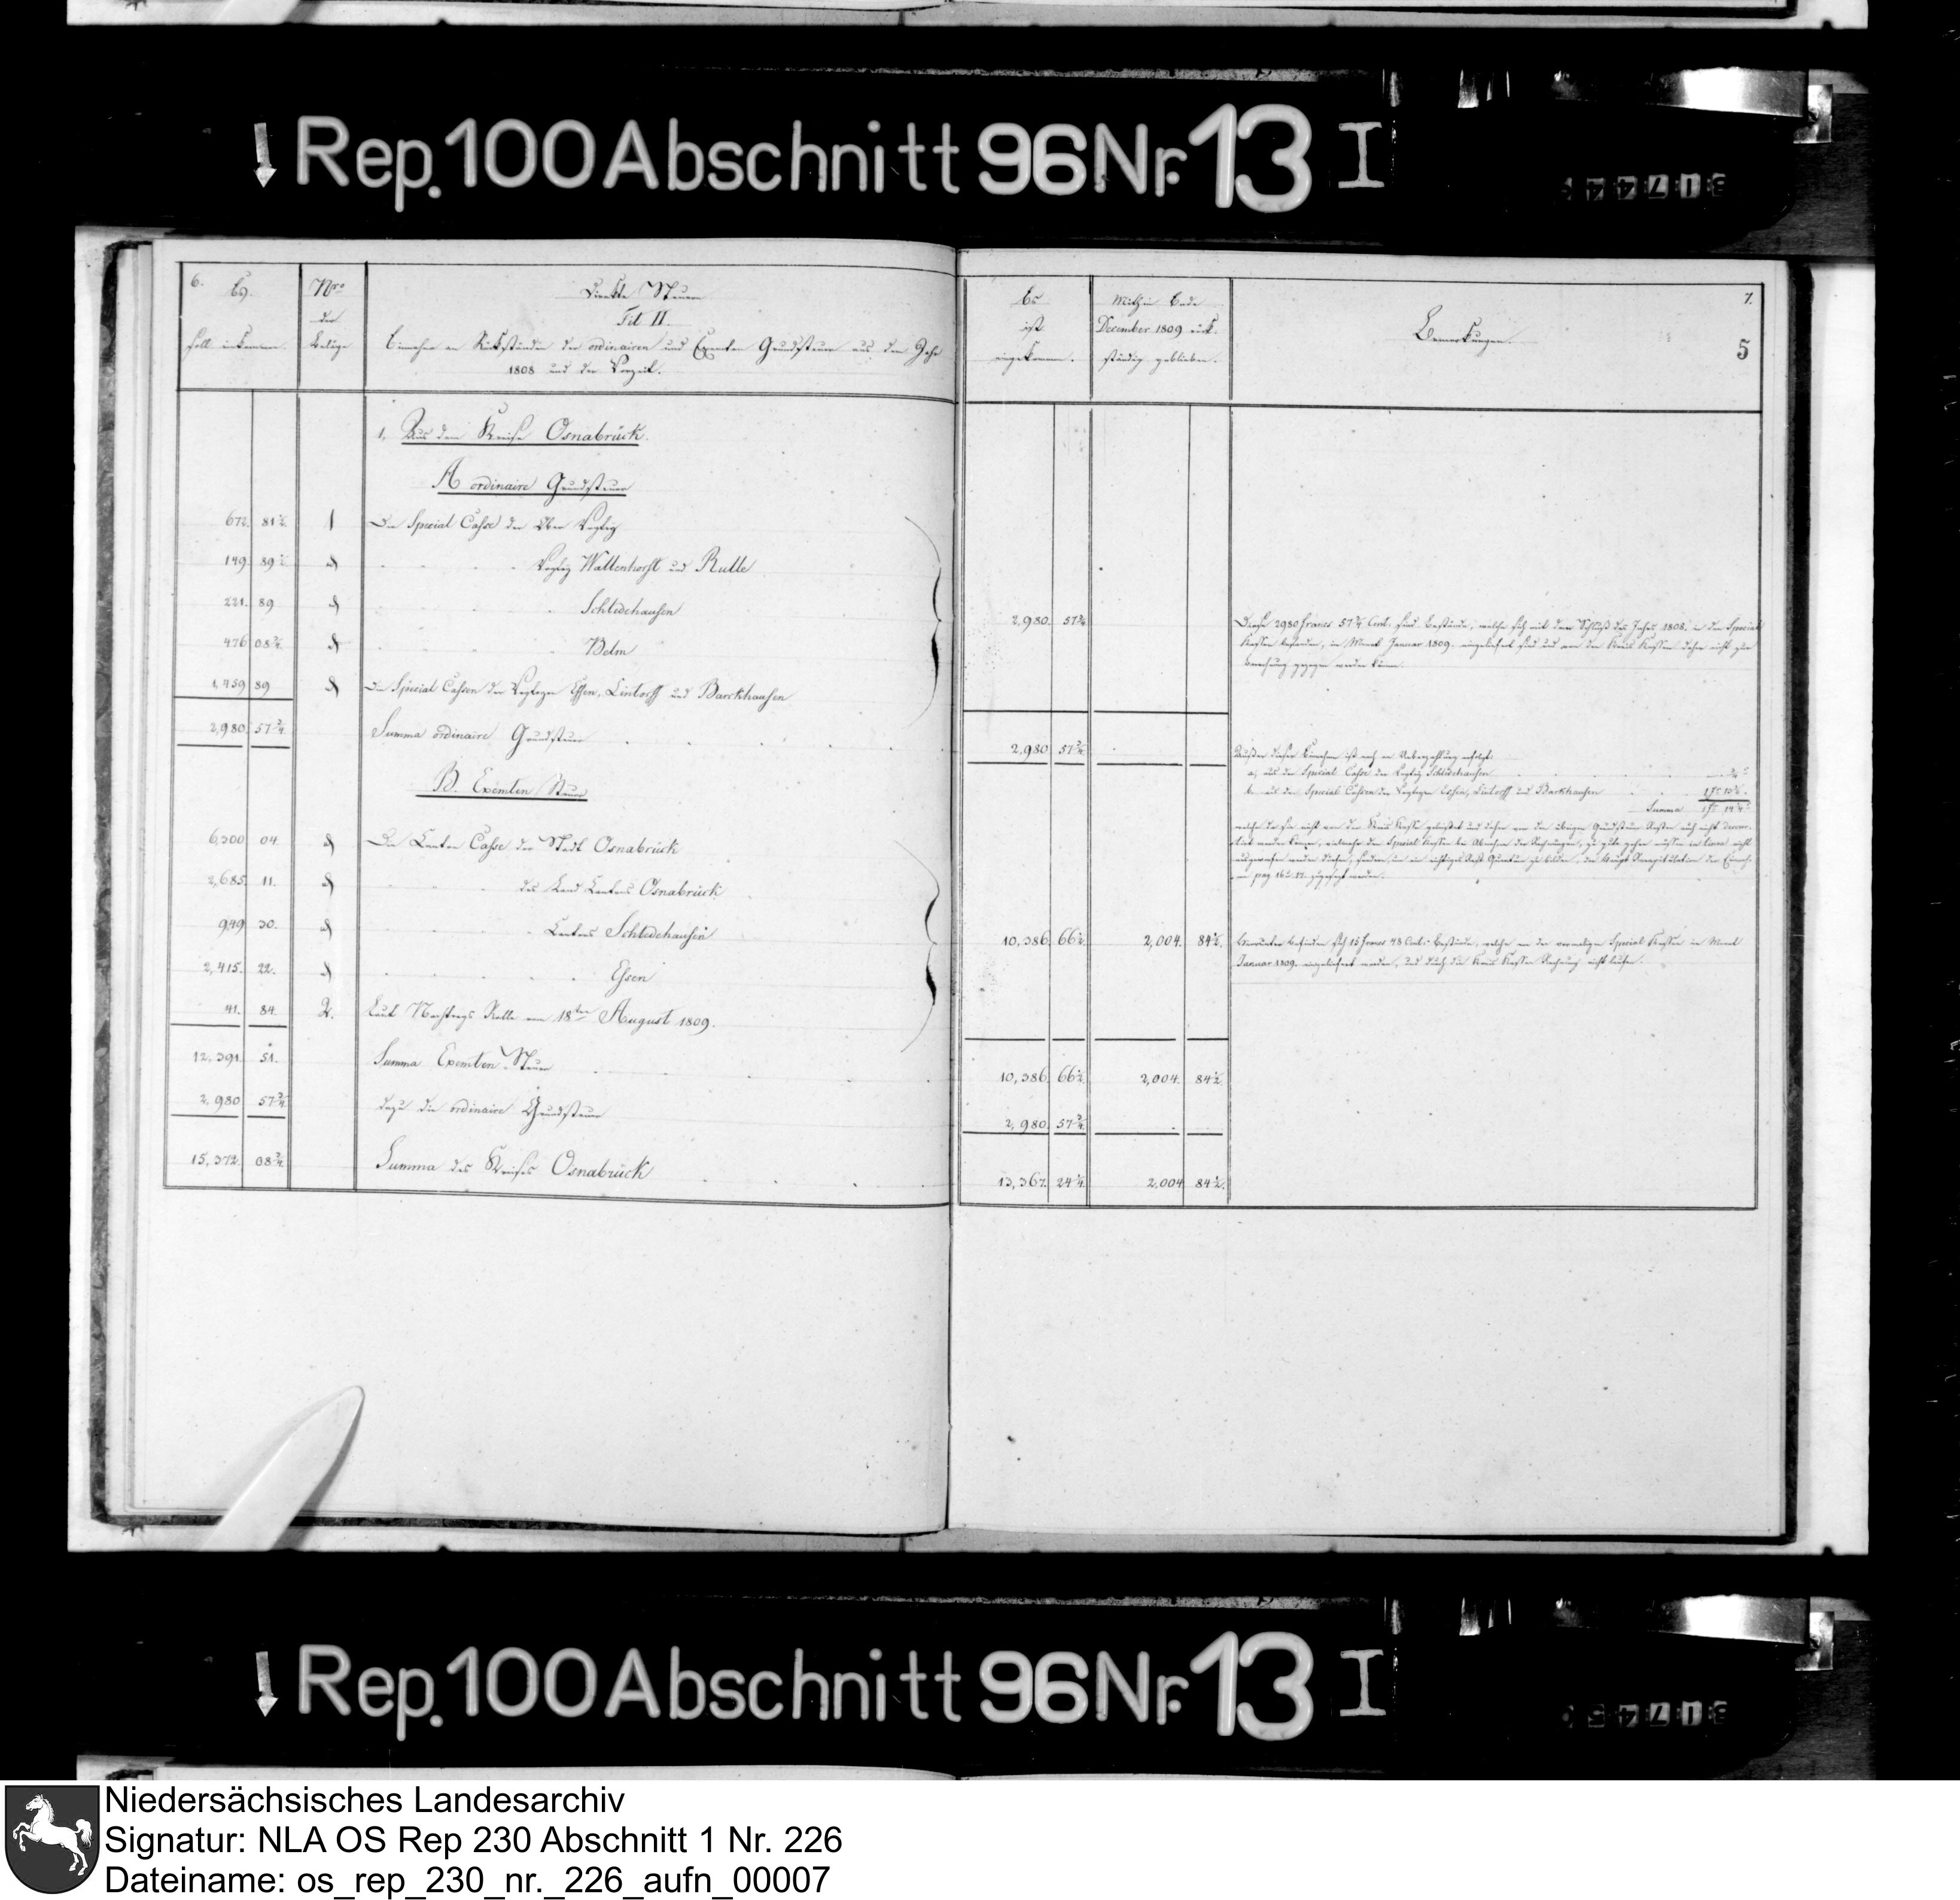 Rep. 100 Abschnitt 96 Nr. 13 I
6.
Es
soll inkommen.
Nro
der
Beläge
Direkte Steuern
Tit II.
Einnahme an Rückständen der ordinairen und Exemten Grundsteuer aus dem Jahr
1808 und der Vorzeit.
1, Aus dem Kreise Osnabrück.
A ordinaire Grundsteuer
672. 81½. 1 Die Special Casse der Vogtey
149. 89 Vogtey Wallenhorst und Rulle
221. 89 Schledehausen
476 08¾. Belm
1,459 89 Die Special Cassen der Vogteyen Essen, Lintorff und Barckhausen
2,980. 57¾. Summa ordinaire Grundsteuer
B. Exemten Steuer
6,300 04. Die Canton Casse der Stadt Osnabrück
2,685. 11. des Land Cantons Osnabrück
949 30. Cantons Schledehausen
2,415. 22. Essen
41. 84. 2. Laut Nachtrags Rolle vom 18ten August 1809.
12,391. 51. Summa Exemten Steuer
2,980 57¾. dazu die ordinaire Grundsteuer
15,372. 08¾. Summa des Kreises Osnabrück
7.
5
Es
ist
eingekommen.
Mithin Ende
December 1809 rück-
ständig geblieben.
Bemerkungen.
2,980. 57¾ Diese 2980 francs 57¾ Cent: sind Bestände, welche sich mit dem Schluß des Jahres 1808. in den Special
Kassen befunden, im Monat Januar 1809. eingeliefert sind und von der Kreis Kasse daher nicht zur
Berechnung gezogen werden können.
2,980 57¾.
Außer dieser Einnahme ist noch an Ueberzahlung erfolgt:
a, aus der Special Casse der Vogtey Schledehausen
b. aus den Special Cassen der Vogteyen Essen, Lintorff und Barkhausen
Summa
10,386. 66½. 2,004. 84½. Hierunter befinden sich 15 francs 48 Cent: Bestände, welche von der vormaligen Special Kasse im Monat
Januar 1809. eingeliefert worden, und durch die Kreis Kassen Rechnung nicht laufen.
10,386. 66½. 2,004. 84½.
2,980. 57¾.
13,367. 24¼. 2,004 84½.
Rep. 100 Abschnitt 96 Nr. 13 I
Niedersächsisches Landesarchiv
Signatur: NLA OS Rep 230 Abschnitt 1 Nr. 226
Dateiname: os_rep_230_nr._226_aufn_00007